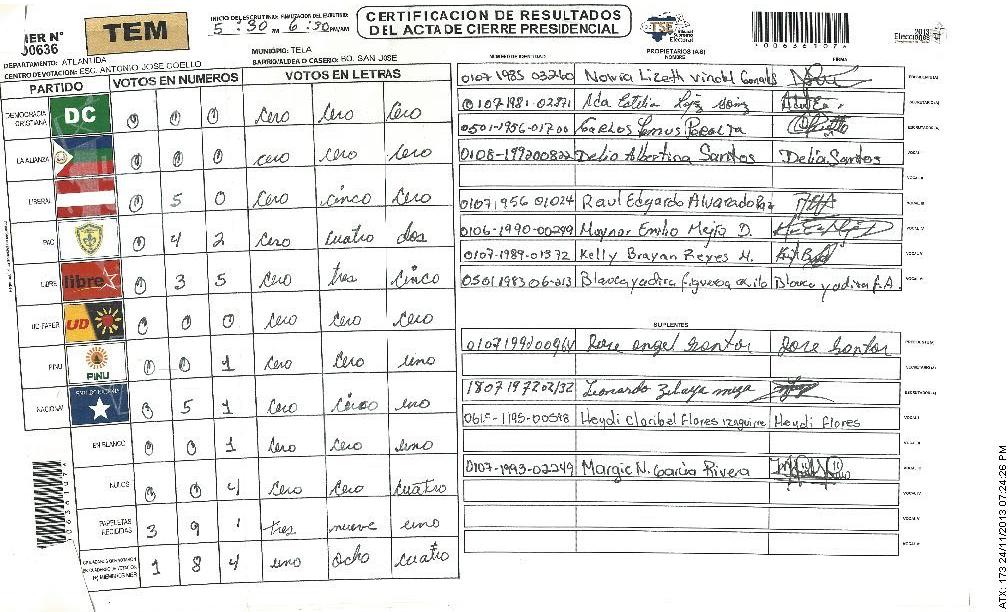 MER N° 00636
TEM
INICIO DEL ESCRUTINIO: 5:30 PM FINALIZACION DEL ESCRUTINIO: 6:30 PM/AM
CERTIFICACION DE RESULTADOS
DEL ACTA DE CIERRE PRESIDENCIAL
TSE Tribunal Supremo Electoral
Elecciones 2013
DEPARTAMENTO: ATLANTIDA
MUNICIPIO: TELA
CENTRO DE VOTACION: ESC. ANTONIO JOSE COELLO
BARRIO/ALDEA O CASERIO: BO. SAN JOSE
PARTIDO VOTOS EN NUMEROS VOTOS EN LETRAS
DEMOCRACIA CRISTIANA DC 0 0 0 Cero Cero Cero
LA ALIANZA 0 0 0 cero cero Cero
LIBERAL 0 5 0 Cero Cinco Cero
PAC 0 4 2 Cero Cuatro dos
LIBRE libre 0 3 5 Cero tres Cinco
UD FAPER UD 0 0 0 Cero Cero Cero
PINU PINU 0 0 1 Cero Cero uno
NACIONAL 0 5 1 Cero Cinco uno
EN BLANCO 0 0 1 Cero Cero uno
NULOS 0 0 4 Cero Cero Cuatro
PAPELETAS RECIBIDAS 3 9 1 tres nueve uno
1 8 4 uno ocho cuatro
PROPIETARIOS (AS)
NUMERO DE IDENTIDAD NOMBRE FIRMA
0107 1985 03260 Lizeth
0107-1981-02871 Ada
0501-1956-01700 Carlos Lemus Peralta
0108-199200822 Delia Albertina Santos Delia Santos
0107 1956 01024 Raul Edgardo Alvarado Paz
0106-1990-00299 Maynor Emilio Mejia D.
0107-1989-01372 Kelly Brayan Reyes M.
0501 1983 06213 Blanca yadira figueroa Blanca yadira F.A.
SUPLENTES
Jose angel Santos Jose Santos
1807197202132 Leonardo Zelaya
Heydi Claribel Flores Izaguirre Heydi Flores
0107-1993-02249 Margie N. Garcia Rivera
0063610 7
ATX: 173 24/11/2013 07:24:26 PM